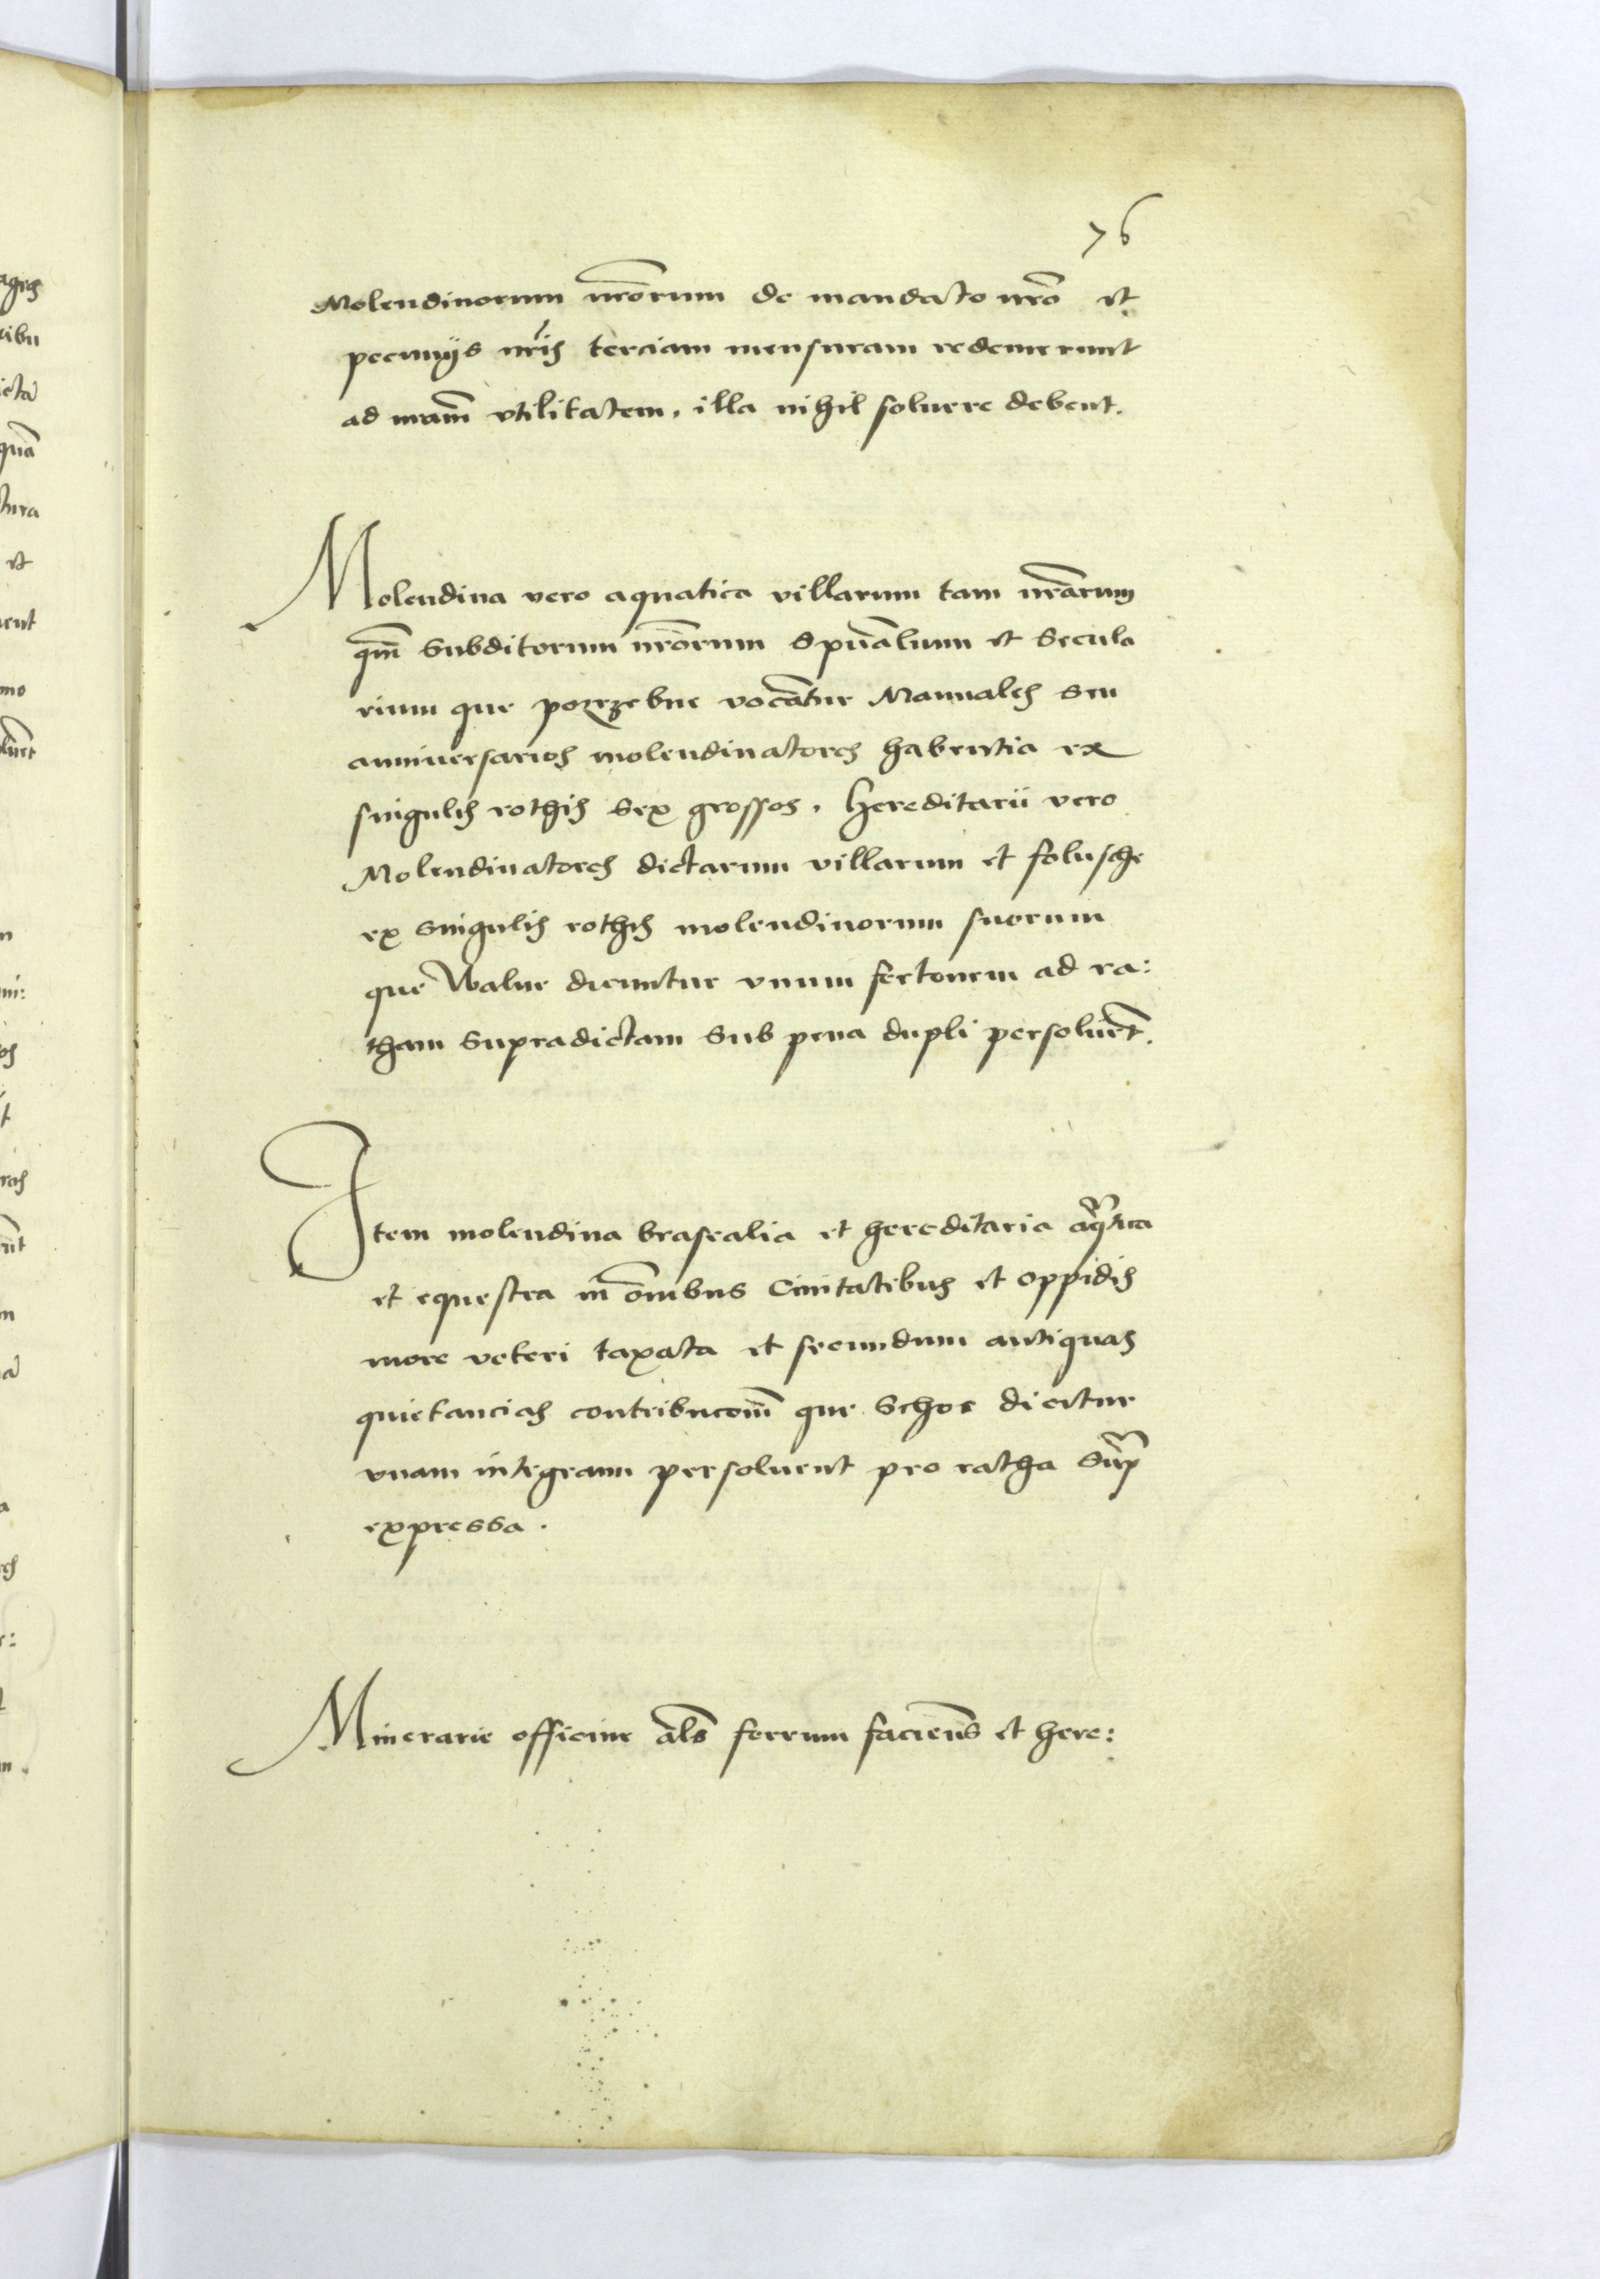 76
Molendinorum nr̃orum de mandato nr̃o et
pecunijs nr̃is terciam mensuram redemerunt
ad nr̃am vtilitatem, illa nihil soluere debent.
Molendina vero aquatica villarum tam nr̃arum
qm̃ subditorum nr̃orum Spũalium et Secula
rium que poczebne vocãtur Manuales seu
anniuersarios molendinatores habentia ex
singulis rothis sex grossos, hereditarii vero
Molendinatores dictarum villarum et folusche
ex singulis rothis molendinorum suorum
que Walne dicuntur vnum fertonem ad ra:
tham supradictam sub pena dupli persoluẽt.
Item molendina brasealia et hereditaria aq̃tica
et equestra in õnibus Ciuitatibus et oppidis
more veteri taxata et secundum antiquas
quietancias contribucom̃ que Schos dicitur
vnam integram persoluent pro ratha sup̃
expressa.
Minerarie officine al̃s ferrum faciẽns et here:
agros
cibu
icta
quã
tura
et
ent
mo
luẽt